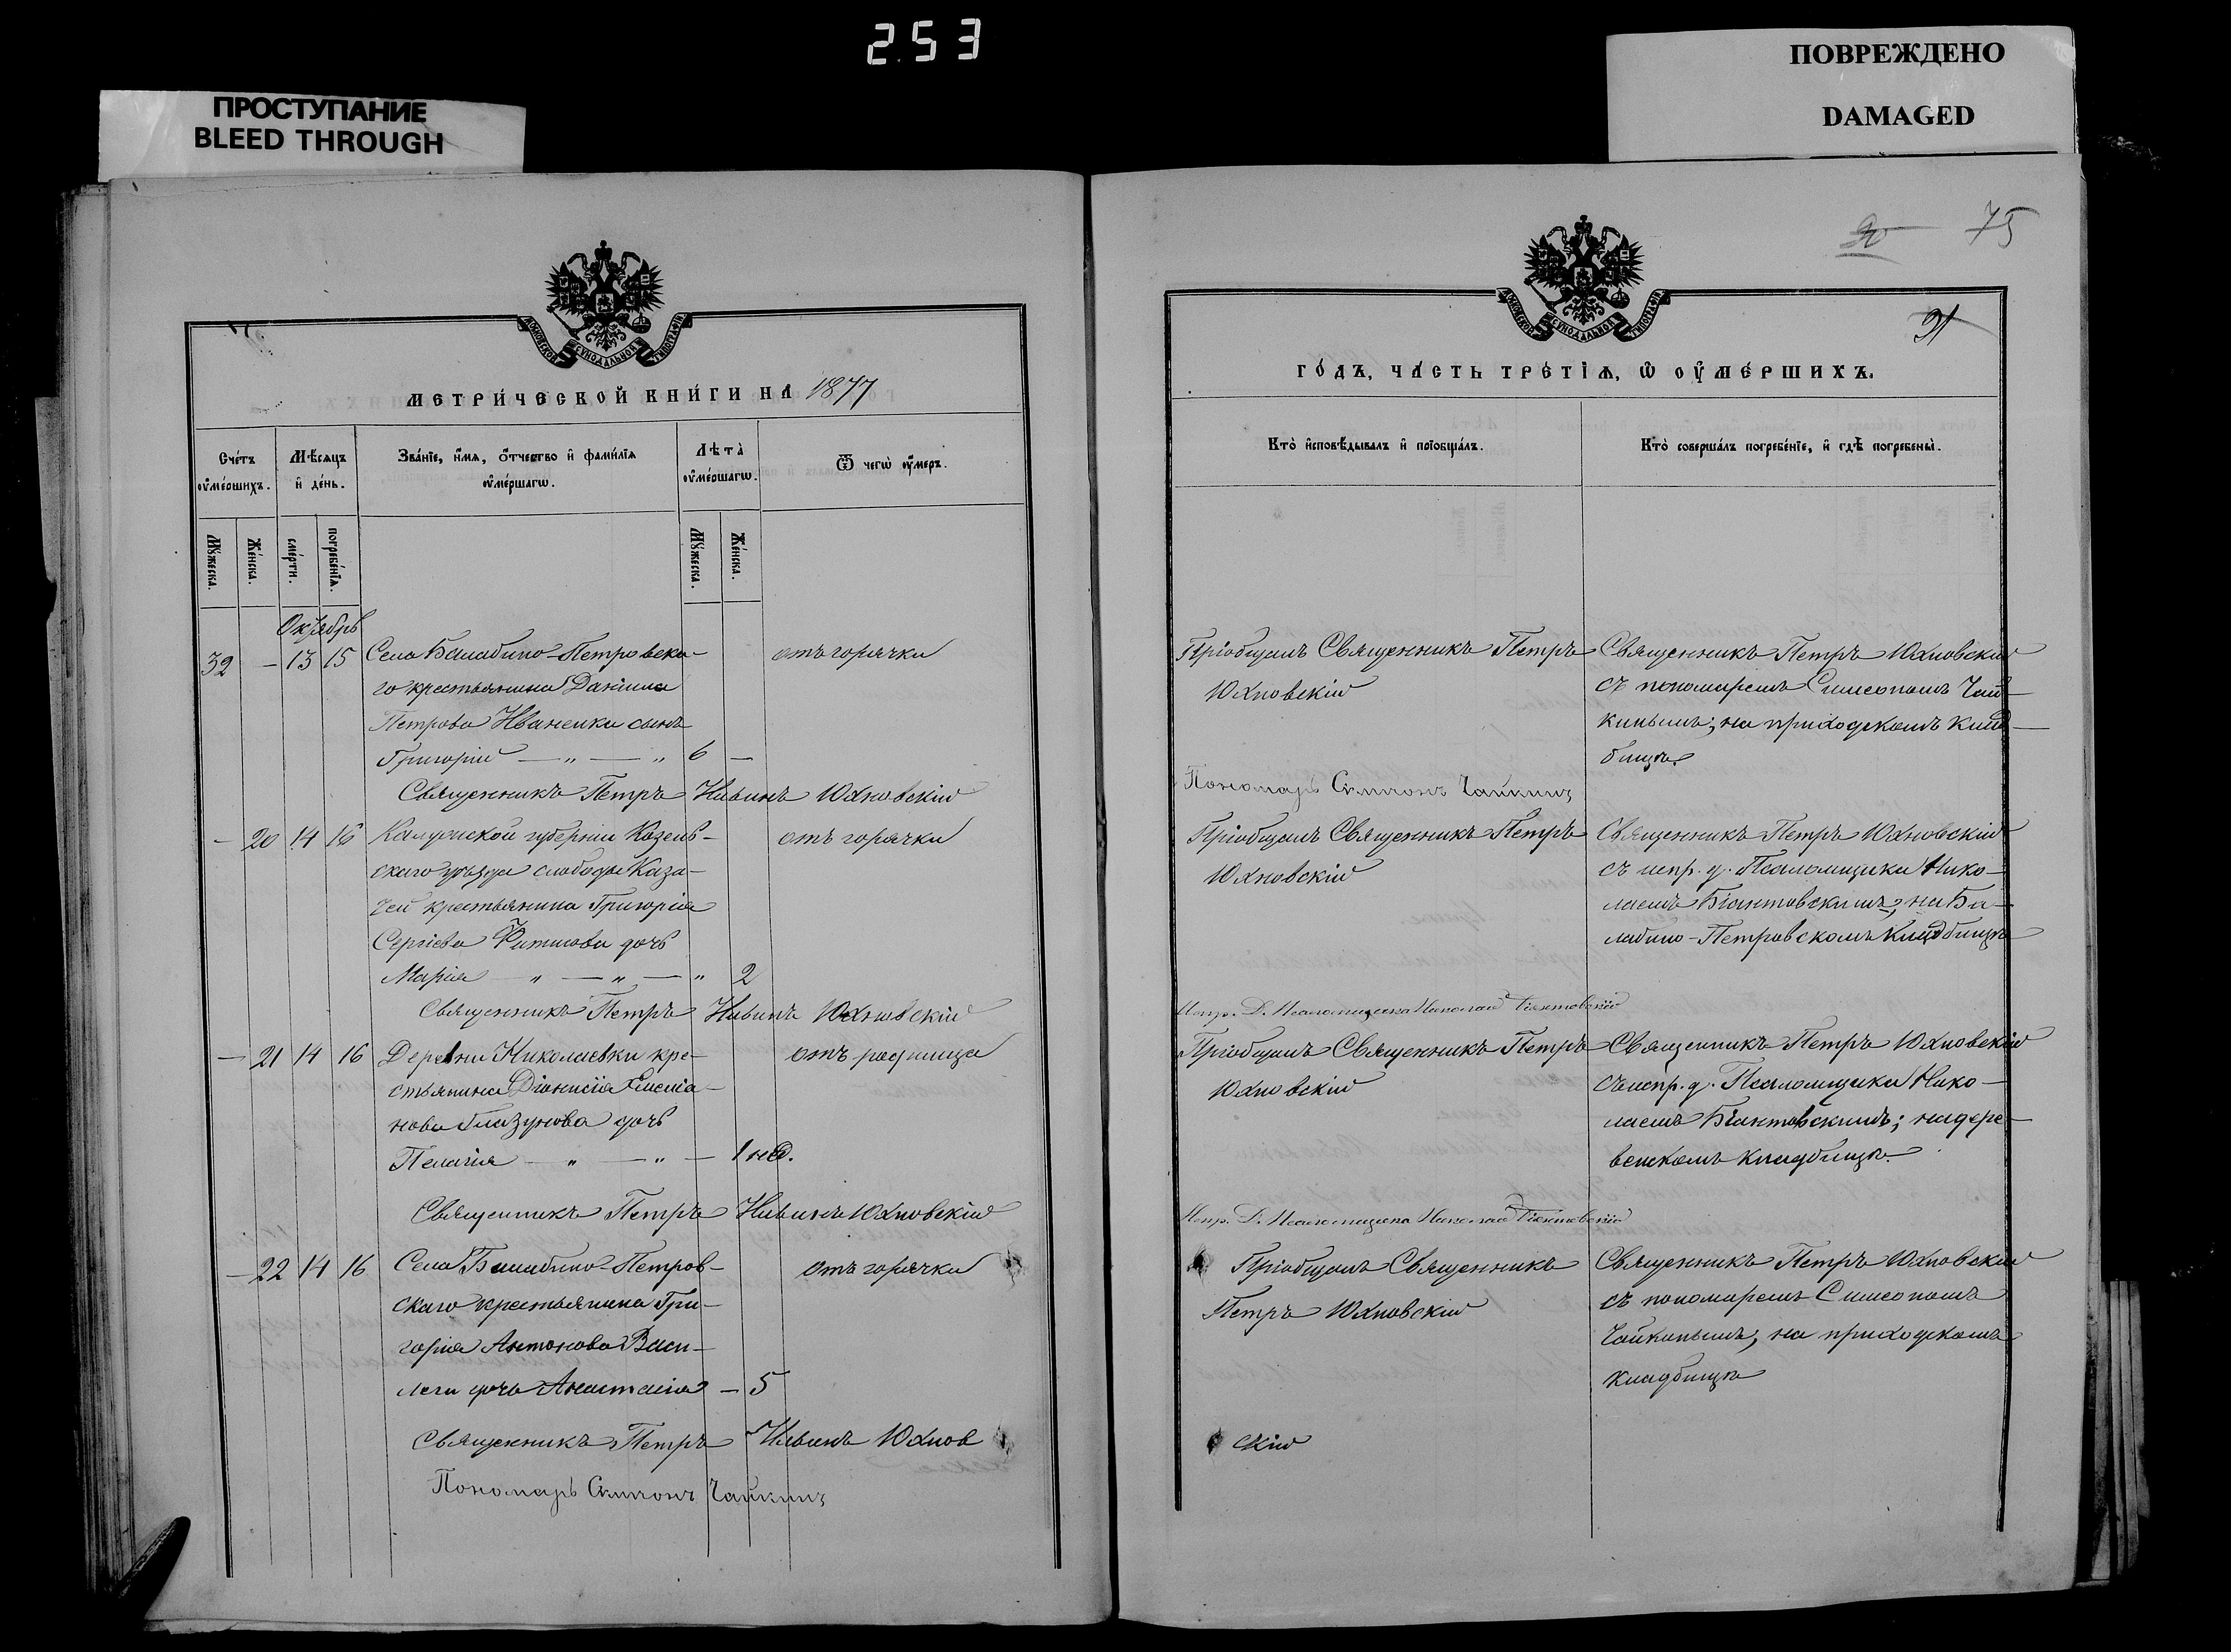 253
ПРОСТУПАНИЕ
BLEED THROUGH
ПОВРЕЖДЕНО
DAMAGED
75
МОСКОВСКОЙ СѴНОДАЛЬНОЙ ТИПОГРАФІИ
МЕТРИ́ЧЕСКОЙ КНИ́ГИ НА 1877
Сче́тъ оу҆ме́ршихъ.
Мѣ́сяцъ и҆ де́нь.
Зва́нїе, и҆́мя, ѻ҆́тчество и҆ фами́лїя оу҆ме́ршагѡ.
Лѣта̀ оу҆ме́ршагѡ.
Ѿ чегѡ̀ оу҆́меръ.
Му́жеска.
Же́нска.
сме́рти.
погребе́нїя.
Му́жеска.
Же́нска.
Октябрь
32 — 13 15 Села Балабино-Петровска- отъ горячки
го крестьянина Даніила
Петрова Иваненка сынъ
Григорій — „ — „ 6 —
Священникъ Петръ Ильинъ Юхновскій
— 20 14 16 Калужской губерніи Козель- отъ горячки
скаго уѣзда слободы Каза-
чей крестьянина Григорія
Сергіева дочь
Марія — „ — „ — „ 2
Священникъ Петръ Ильинъ Юхновскій
— 21 14 16 Деревни Николаевки кре- отъ родимца
стьянина Діонисія Емелiа-
нова Глазунова дочь
Пелагія — „ — „ — 1 нед.
Священникъ Петръ Ильинъ Юхновскій
— 22 14 16 Села Балабино-Петров- отъ горячки
скаго крестьянина Гри-
горія Антонова Васи-
леги дочь Анастасія — 5
Священникъ Петръ Ильинъ Юхнов
Пономарь Симеонъ Чайкинъ
МОСКОВСКОЙ СѴНОДАЛЬНОЙ ТИПОГРАФІИ
91
ГО́ДЪ, ЧА́СТЬ ТРЕ́ТІѦ, Ѡ҆ ОУ҆МЕ́РШИХЪ.
Кто̀ и҆сповѣ́дывалъ и҆ прїобща́лъ.
Кто̀ соверша́лъ погребе́нїе, и҆ гдѣ̀ погребены̀.
Пріобщалъ Священникъ Петръ
Юхновскій
Священникъ Петръ Юхновскій
съ пономаремъ Симеономъ Чай-
кинымъ; на приходскомъ клад-
бищѣ.
Пономарь Симеонъ Чайкинъ
Пріобщалъ Священникъ Петръ
Юхновскій
Священникъ Петръ Юхновскій
съ испр. д. Псаломщика Нико-
лаемъ Біантовскимъ; на Ба-
лабино-Петровскомъ кладбищѣ
Испр. Д. Псаломщика Николай Біантовскій
Пріобщалъ Священникъ Петръ
Юхновскій
Священникъ Петръ Юхновскій
съ испр. д. Псаломщика Нико-
лаемъ Біантовскимъ; на дере-
венскомъ кладбищѣ.
Испр. Д. Псаломщика Николай Біантовскій
Пріобщалъ Священникъ
Петръ Юхновскій
Священникъ Петръ Юхновскій
съ пономаремъ Симеономъ
Чайкинымъ, на приходскомъ
кладбищѣ
скій